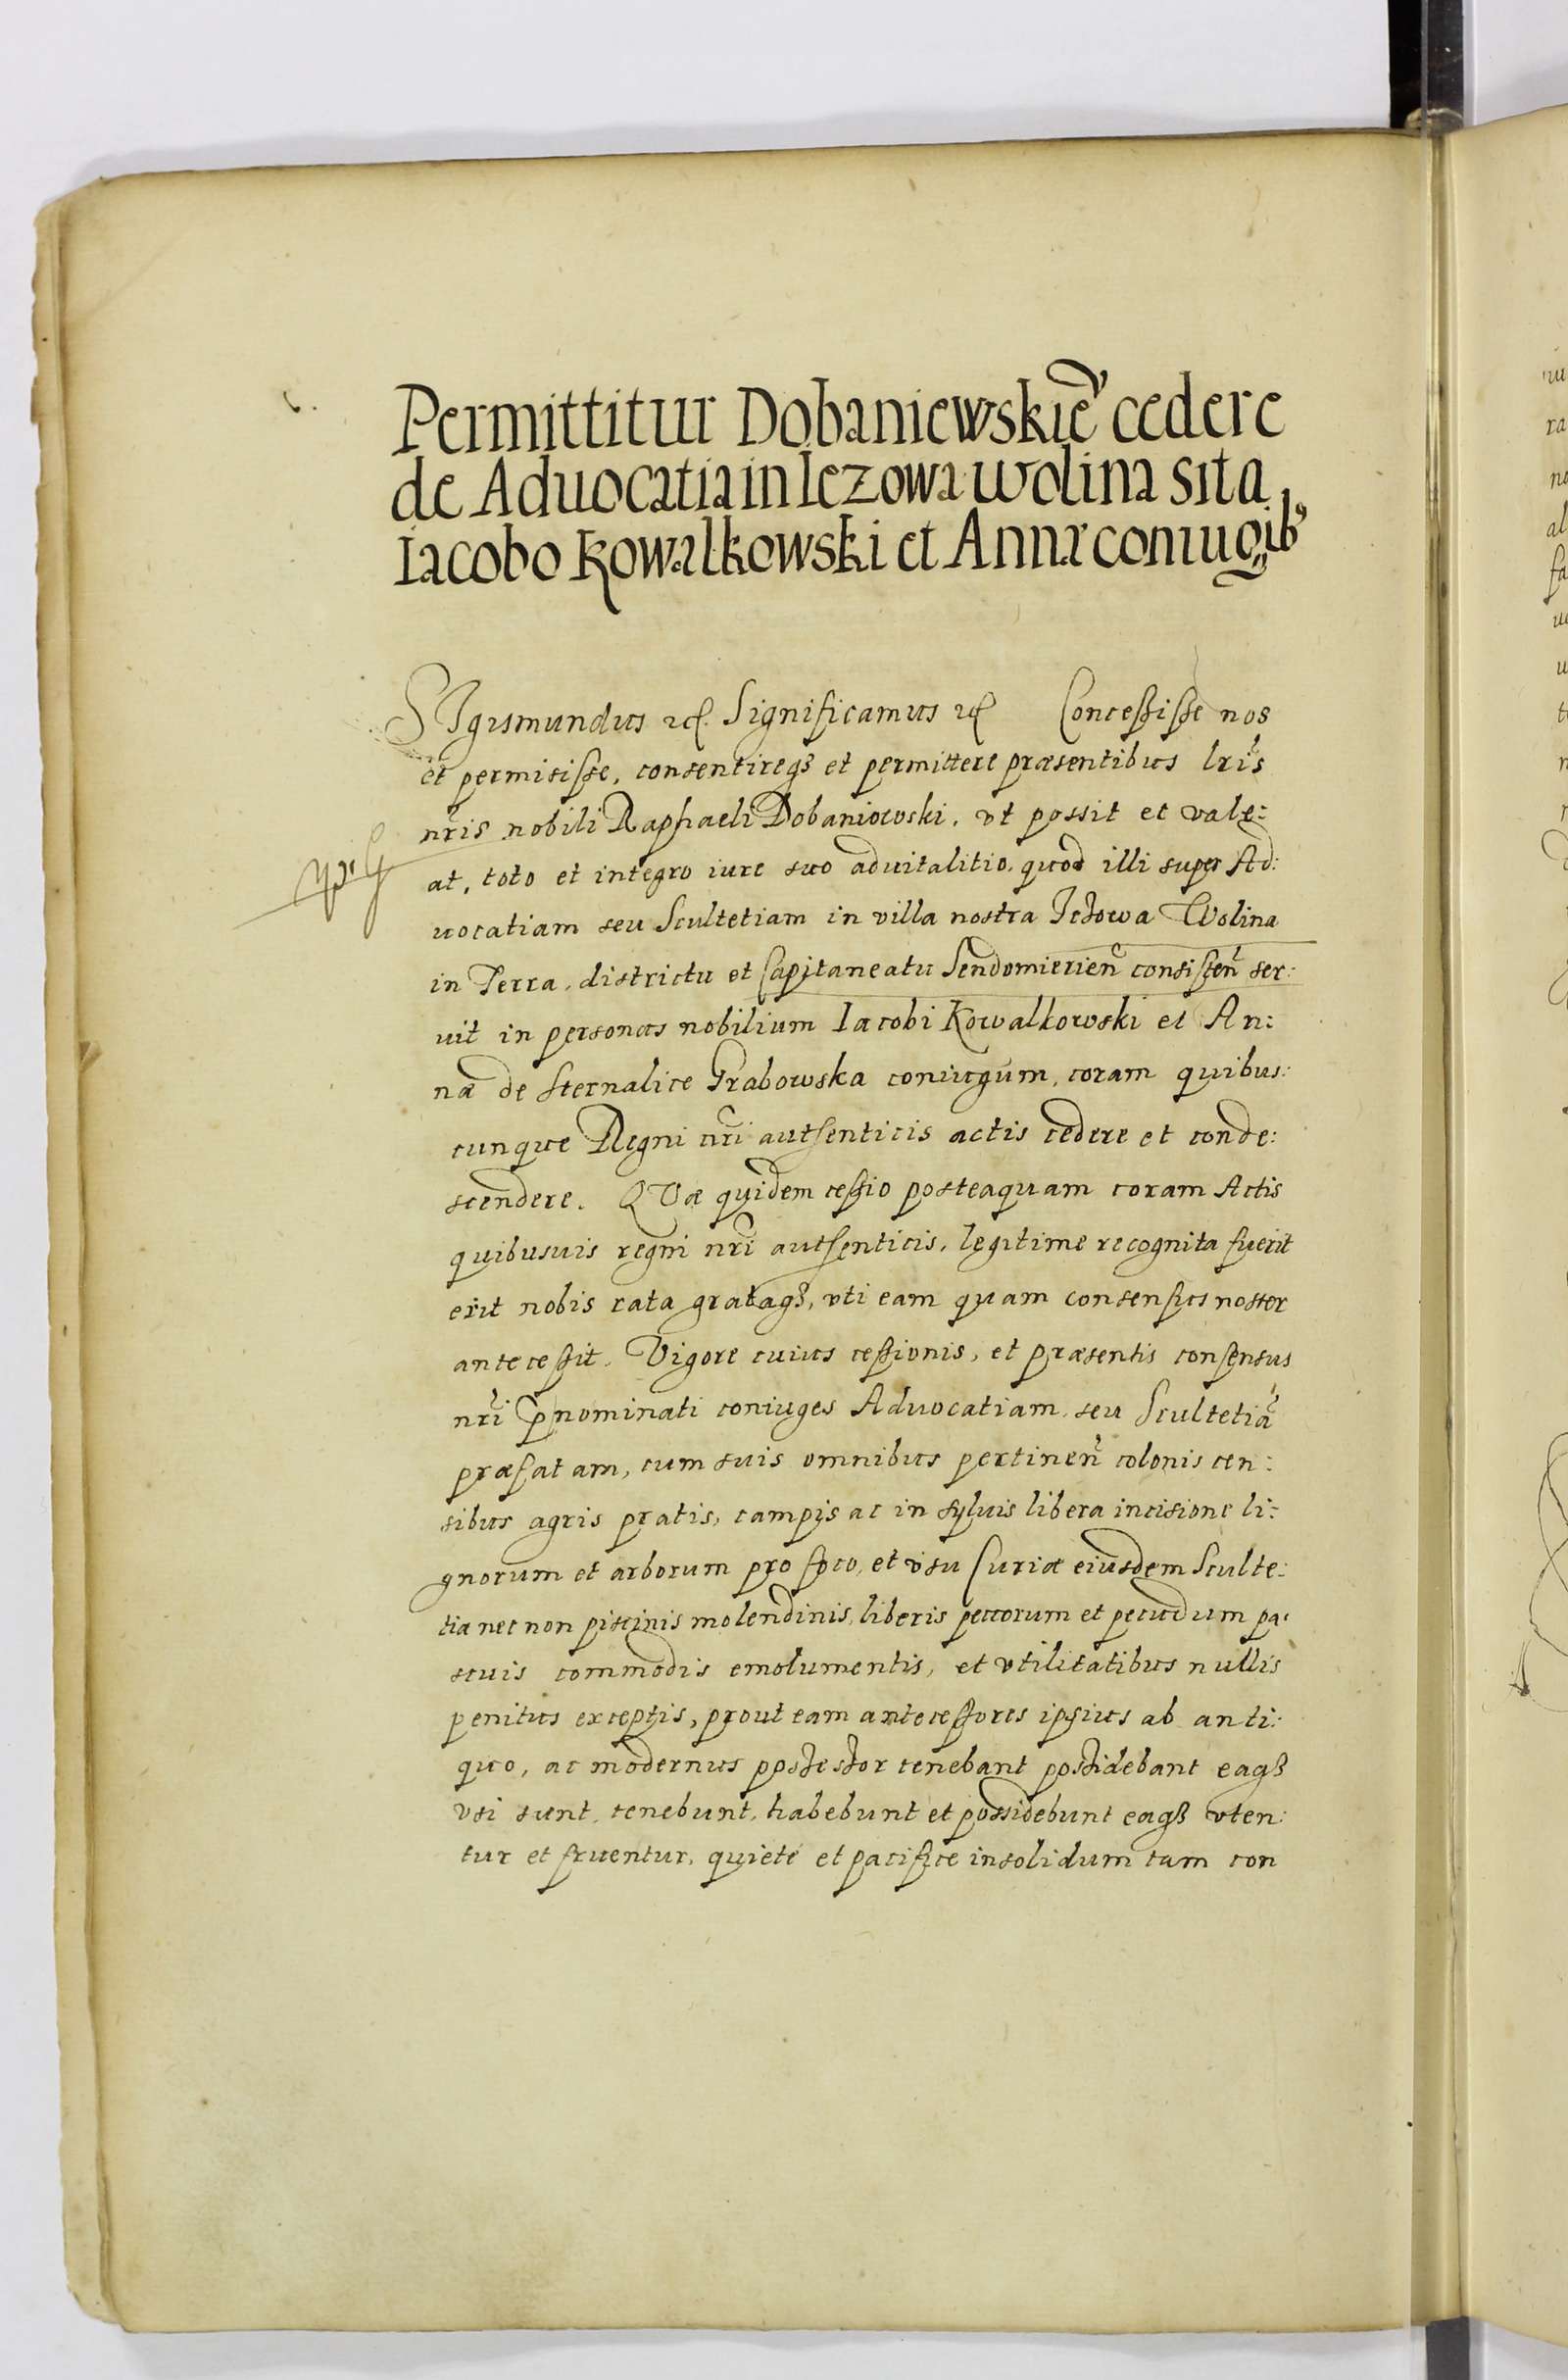 Permittitur Dobaniewskie cedere
de Aduocatia in Iezowa wolina sita
Iacobo Kowalkowski et Annæ coniugib9
SIgismundus etc. Significamus etc Concessisse nos
et permisisse, consentireqȝ et permittere præsentibus lris
nris nobili Raphaeli Dobaniowski, vt possit et vale:
at, toto et integro iure suo aduitalitio, quod illi super Ad:
uocatiam seu Scultetiam in villa nostra Ieżowa Wolina
in Terra, districtu et Capitaneatu Sendomirien consisten ser:
uit in personas nobilium Iacobi Kowalkowski et An:
næ de Sternalice Grabowska coniugum, coram quibus:
cunque Regni nri autenticis actis cedere et conde:
scendere. QVæ quidem cessio posteaquam coram Actis
quibusuis regni nri autenticis, legitime recognita fuerit
erit nobis rata grataqȝ, vti eam quam consensus noster
antecessit. Vigore cuius cessionis, et præsentis consensus
nri pnominati coniuges Aduocatiam, seu Scultetiã
præfatam, cum suis omnibus pertinen colonis cen:
sibus agris pratis, campis ac in syluis libera incisione li:
gnorum et arborum pro foco, et vsu Curiæ eiusdem Sculte:
tia nec non piscinis molendinis, liberis pecorum et pecudum pa:
scuis commodis emolumentis, et vtilitatibus nullis
penitus exceptis, prout eam antecessores ipsius ab anti:
quo, ac modernus possessor tenebant possidebant eaqȝ
vsi sunt, tenebunt, habebunt et possidebunt eaqȝ vten:
tur et fruentur, quiete et pacifice insolidum tam con